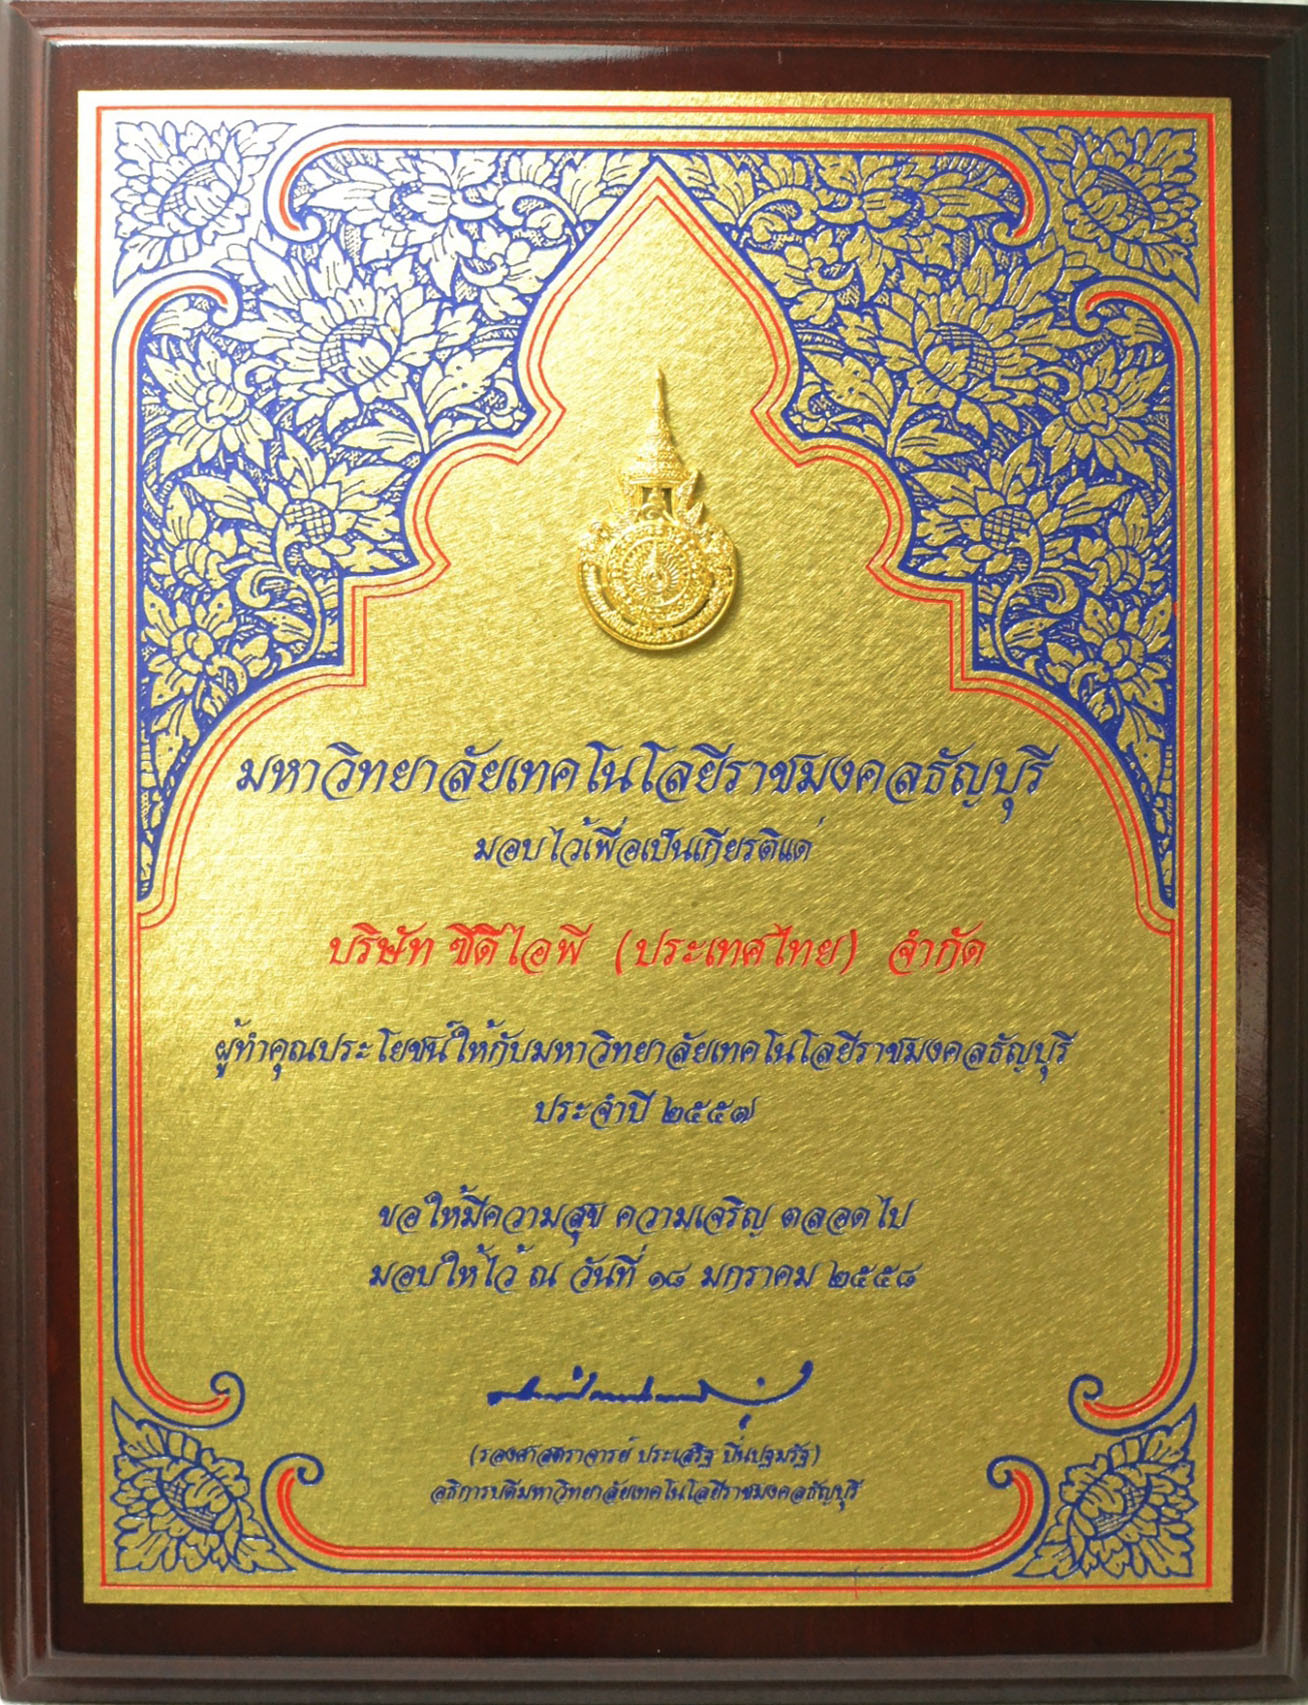 มหาวิทยาลัยเทคโนโลยีราชมงคลธัญบุรี
มอบไว้เพื่อเป็นเกียรติแด่
บริษัท ซีดีไอพี (ประเทศไทย) จำกัด
ผู้ทำคุณประโยชน์ให้กับมหาวิทยาลัยเทคโนโลยีราชมงคลธัญบุรี
ประจำปี ๒๕๕๗
ขอให้มีความสุข ความเจริญ ตลอดไป
มอบให้ไว้ ณ วันที่ ๑๘ มกราคม ๒๕๕๘
(รองศาสตราจารย์ ประเสริฐ ปิ่นปฐมรัฐ)
อธิการบดีมหาวิทยาลัยเทคโนโลยีราชมงคลธัญบุรี